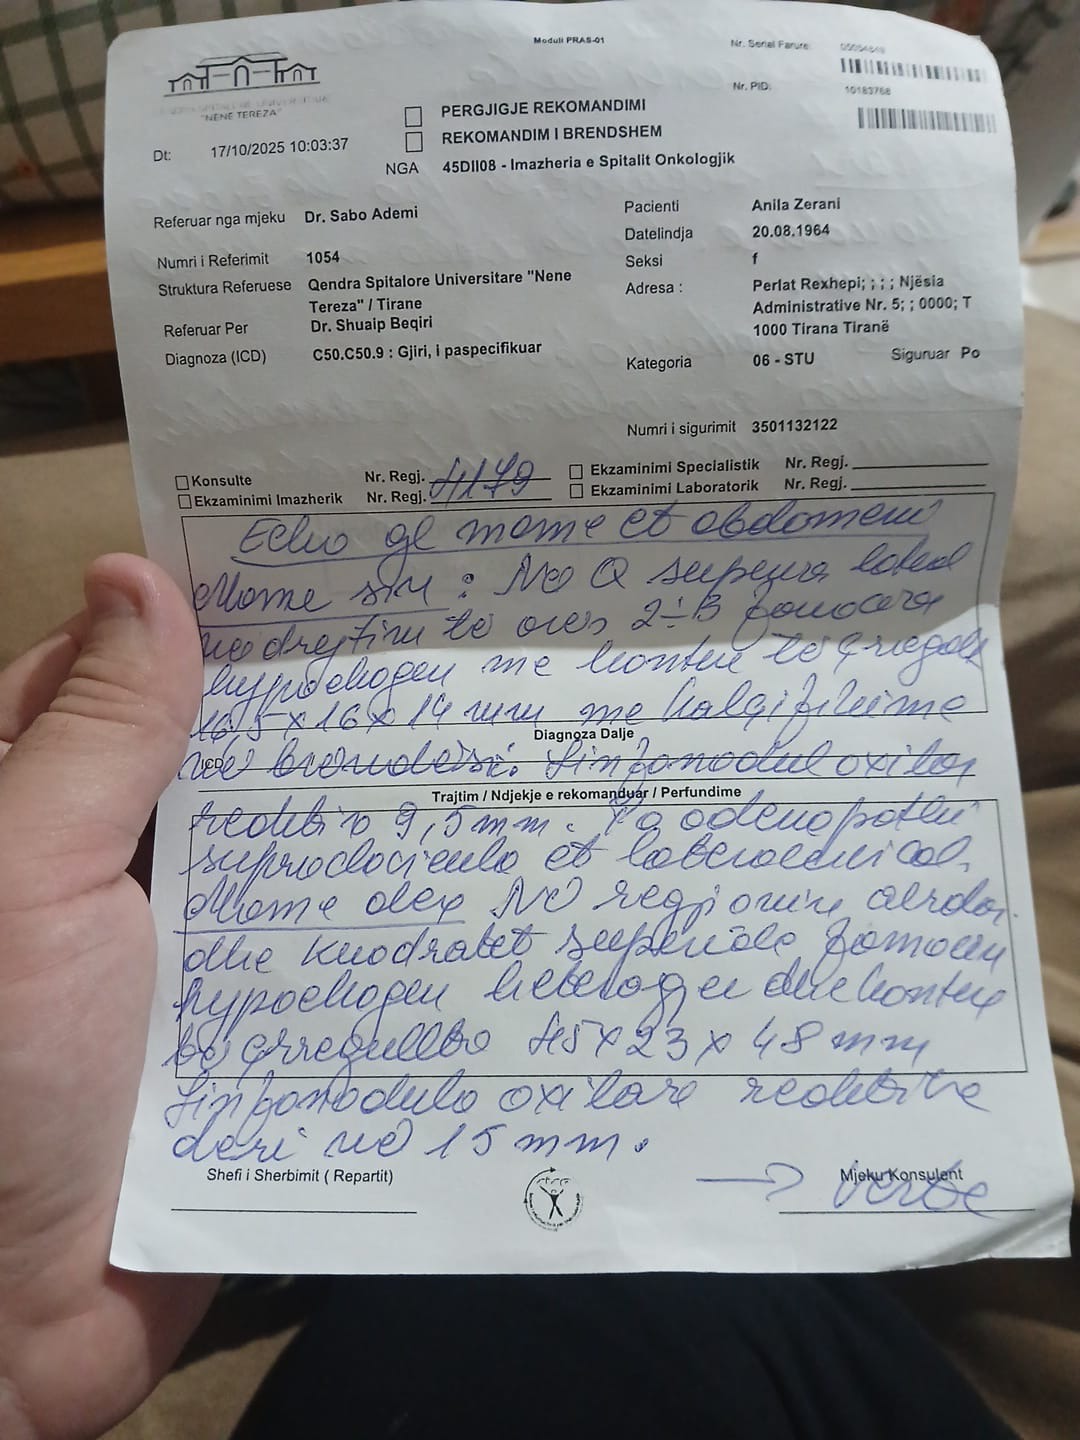 Moduli PRAS-01
Nr. Serial Farure:
Nr. PID: 10183768
"NENE TEREZA"
PERGJIGJE REKOMANDIMI
REKOMANDIM I BRENDSHEM
Dt: 17/10/2025 10:03:37
NGA 45DII08 - Imazheria e Spitalit Onkologjik
Referuar nga mjeku Dr. Sabo Ademi
Numri i Referimit 1054
Struktura Referuese Qendra Spitalore Universitare "Nene
Tereza" / Tirane
Referuar Per Dr. Shuaip Beqiri
Diagnoza (ICD) C50.C50.9 : Gjiri, i paspecifikuar
Pacienti Anila Zerani
Datelindja 20.08.1964
Seksi f
Adresa : Perlat Rexhepi; ; ; ; Njësia
Administrative Nr. 5; ; 0000; T
1000 Tirana Tiranë
Kategoria 06 - STU Siguruar Po
Numri i sigurimit 3501132122
Konsulte Nr. Regj.
Ekzaminimi Imazherik Nr. Regj. 4179
Ekzaminimi Specialistik Nr. Regj.
Ekzaminimi Laboratorik Nr. Regj.
Echo gl mame et abdomeni
Mame sin : Në Q supero lateral
në drejtim të ores 2 ÷ 3 formacion
hypoehogen me kontur të çrregullt
16,5 x 16 x 14 mm me kalçifikime
Diagnoza Dalje
ICD
në brendësi. Limfonodul axilar
Trajtim / Ndjekje e rekomanduar / Perfundime
reaktiv 9,5 mm. Pa adenopathi
supraclaviculo et laterocervical.
Mame dex Në regjionin areolar
dhe kuadratet superiore formacion
hypoehogen heterogjen dhe kontur
të çrregullto 45 x 23 x 48 mm
Limfonodulo axilare reaktive
deri në 15 mm.
Shefi i Sherbimit ( Repartit)
Mjeku Konsulent
→ Verte